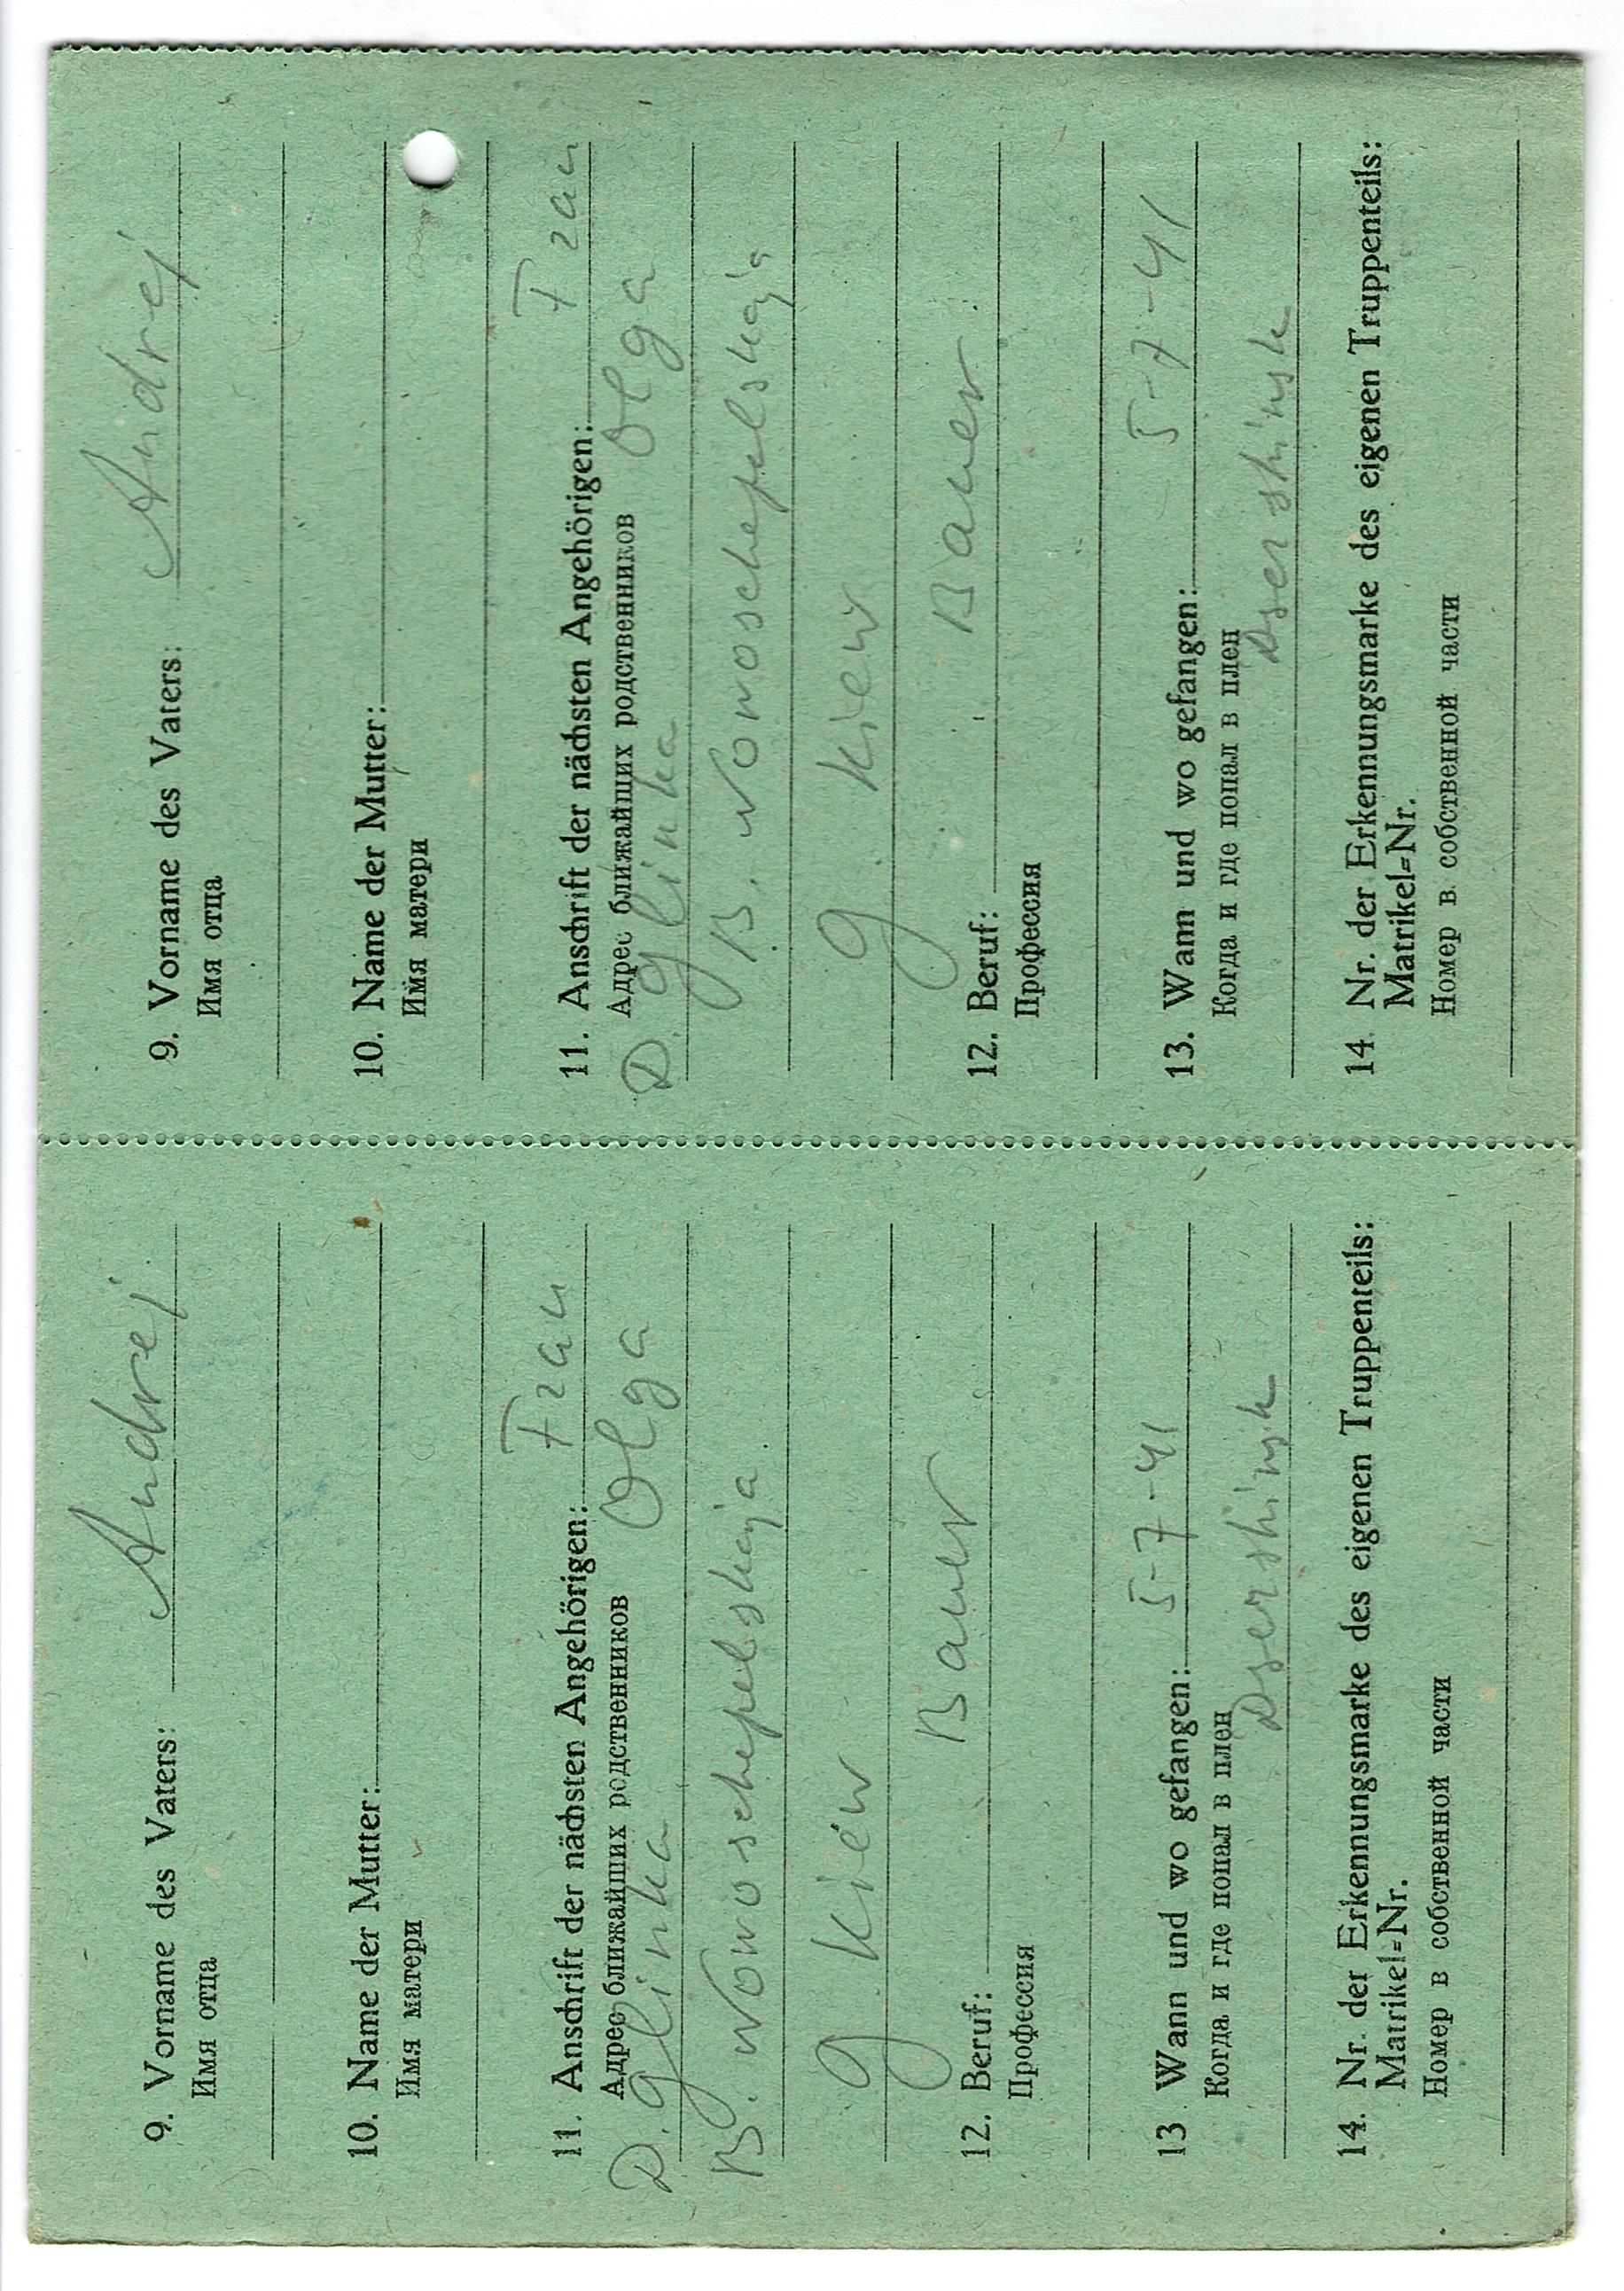 9. Vorname des Vaters: Andrej
Имя отца
10. Name der Mutter:
Имя матери
11. Anschrift der nächsten Angehörigen: Frau
Адрес ближайших родственников Olga
D. Glinka
B. Nowoschepelskaja
g. Kiew
12. Beruf: Bauer
Профессия
13. Wann und wo gefangen: 5-7-41
Когда и где попал в плен
Dsershinsk
14. Nr. der Erkennungsmarke des eigenen Truppenteils:
Matrikel=Nr.
Номер в собственной части
9. Vorname des Vaters: Andrej
Имя отца
10. Name der Mutter:
Имя матери
11. Anschrift der nächsten Angehörigen: Frau
Адрес ближайших родственников Olga
D. Glinka
B. Nowoschepelskaja
g. Kiew
12. Beruf: Bauer
Профессия
13. Wann und wo gefangen: 5-7-41
Когда и где попал в плен
Dsershinsk
14. Nr. der Erkennungsmarke des eigenen Truppenteils:
Matrikel=Nr.
Номер в собственной части